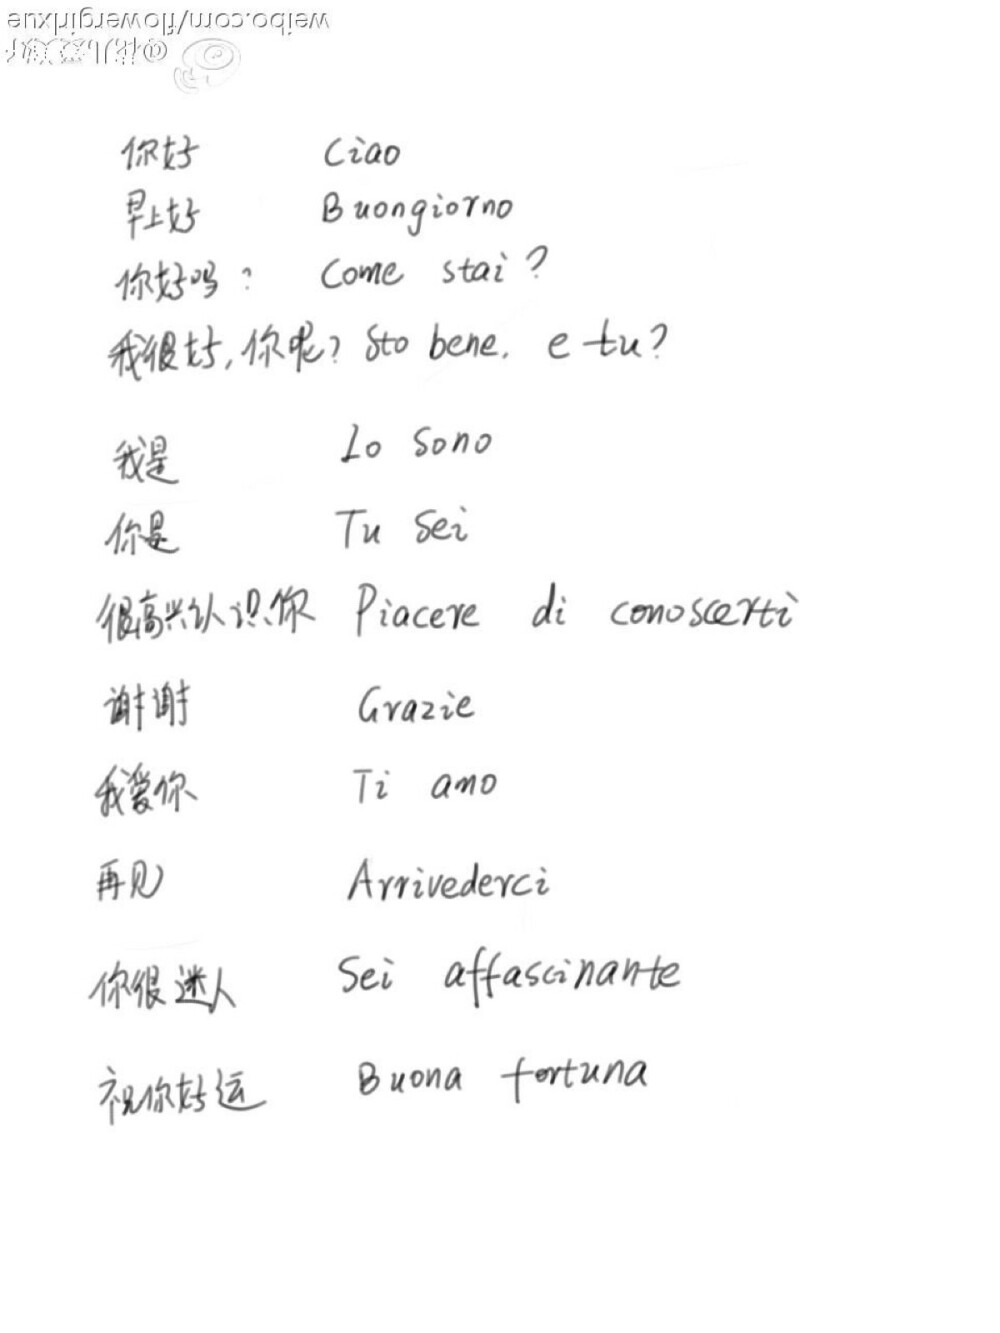 weibo.com/flowergirlxue
你好 Ciao
早上好 Buongiorno
你好吗? Come stai?
我很好,你呢? Sto bene. e tu?
我是 Io sono
你是 Tu sei
很高兴认识你 Piacere di conoscerti
谢谢 Grazie
我爱你 Ti amo
再见 Arrivederci
你很迷人 Sei affascinante
祝你好运 Buona fortuna